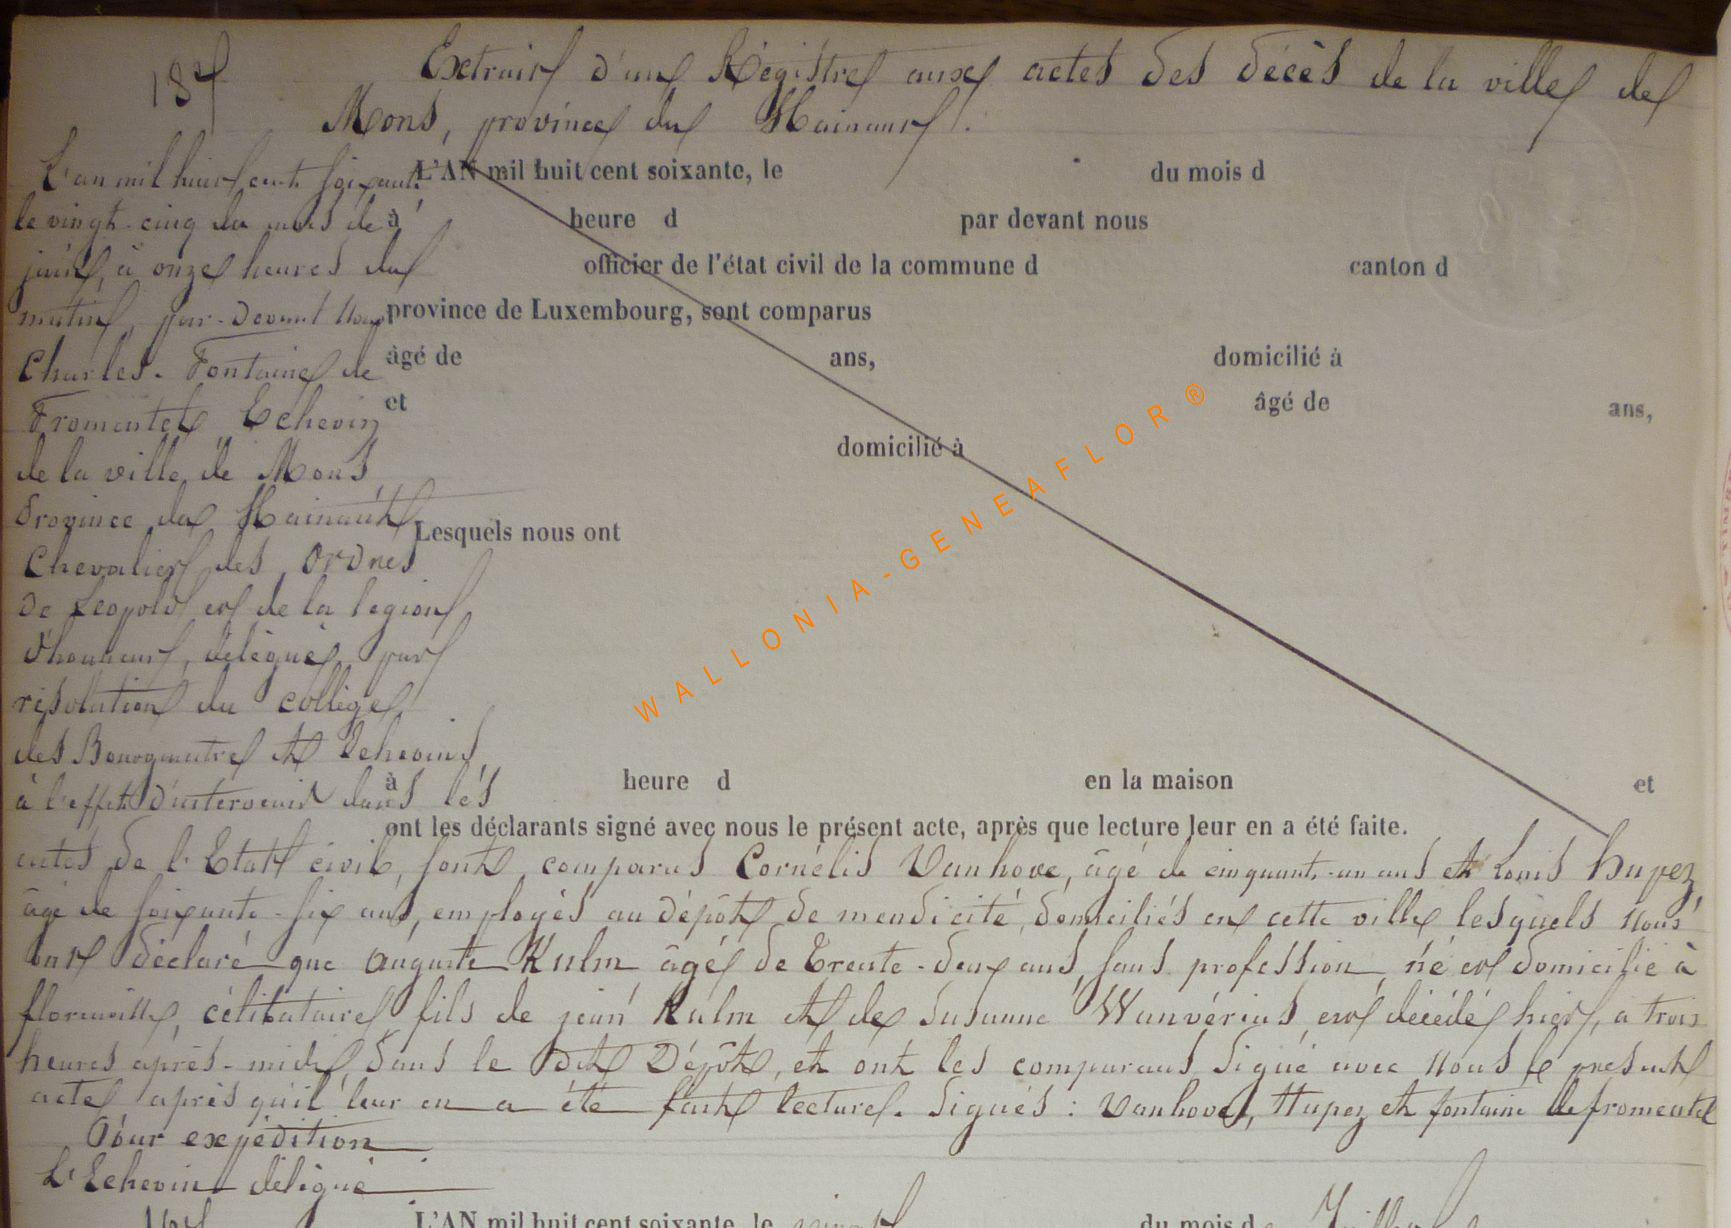 187
Extrait d'un Régistre aux actes des décès de la ville de
Mons, province du Hainaut.
L'an mil huit cent soixante
le vingt-cinq du mois de
juin, à onze heures du
matin, par-devant Nous
Charles-Fontaine de
Fromentel, Echevin
de la ville de Mons
Province du Hainaut
Chevalier des Ordres
de Léopold et de la légion
d'honneur, délégué par
résolution du collège
des Bourgmestre et Echevins
à l'effet d'intervenir dans les
L'AN mil huit cent soixante, le du mois d
à heure d par devant nous
officier de l'état civil de la commune d canton d
province de Luxembourg, sont comparus
âgé de ans, domicilié à
et âgé de ans,
domicilié à
Lesquels nous ont
à heure d en la maison et
ont les déclarants signé avec nous le présent acte, après que lecture leur en a été faite.
actes de l'Etat civil, sont comparus Cornélis Vanhove, âgé de cinquante-un ans et Louis Hupez,
âgé de soixante-six ans, employés au dépôt de mendicité, domiciliés en cette ville lesquels nous
ont déclaré que Auguste Kulm âgé de Trente-deux ans, sans profession, né et domicilié à
florenville, célibataire fils de jean Kulm et de Susanne Wanvérius, est décédé hier, à trois
heures après-midi, dans le dit Dépôt, et ont les comparans signé avec Nous le present
acte après qu'il leur en a été fait lecture. Signés : Vanhove, Hupez et fontaine de fromentel
Pour expédition
L'Echevin délégué
L'AN mil huit cent soixante, le vingt du mois de Juillet
WALLONIA-GENEAFLOR®